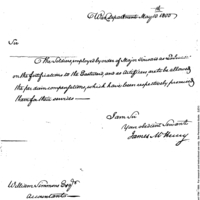 War Department May 10th 1800
Sir
The Soldiers employed by order of Major Rivardi as Labourers
on the fortifications to the Eastward, and as artificers are to be allowed
the per diem compensations, which have been respectively promised
them for their services
I am Sir
Your obedient Servant
James McHenry
William Simmons Esqr
Accountant